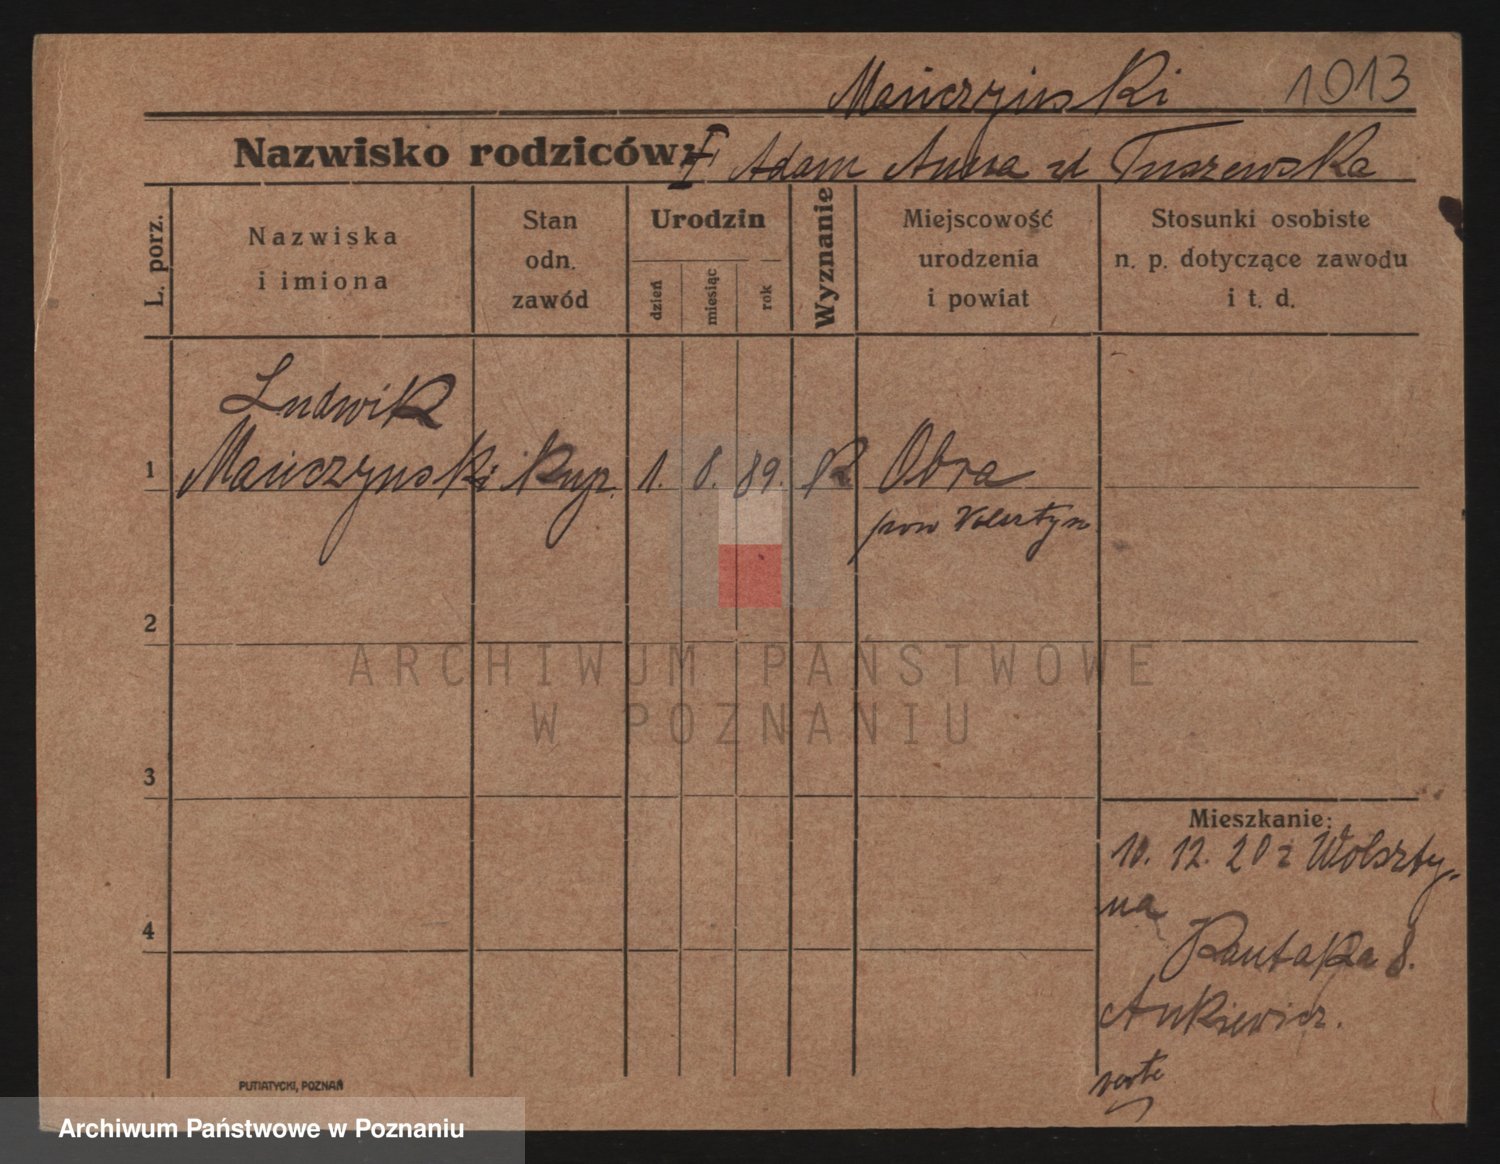 Mańczyński 1913
Nazwisko rodziców: Adam Anna zd Tuszewska
L. porz.
Nazwiska
i imiona
Stan
odn.
zawód
Urodzin
dzień
miesiąc
rok
Wyznanie
Miejscowość
urodzenia
i powiat
Stosunki osobiste
n. p. dotyczące zawodu
i t. d.
Ludwik
1 Mańczynski kup. 1. 8. 89. K Obra
pow Wolsztyn
2
ARCHIWUM PAŃSTWOWE
W POZNANIU
3
4
Mieszkanie:
10. 12. 20 z Wolszty-
na
Rantaka 8.
Ankiewicz.
verte
PUTIATYCKI, POZNAŃ
Archiwum Państwowe w Poznaniu